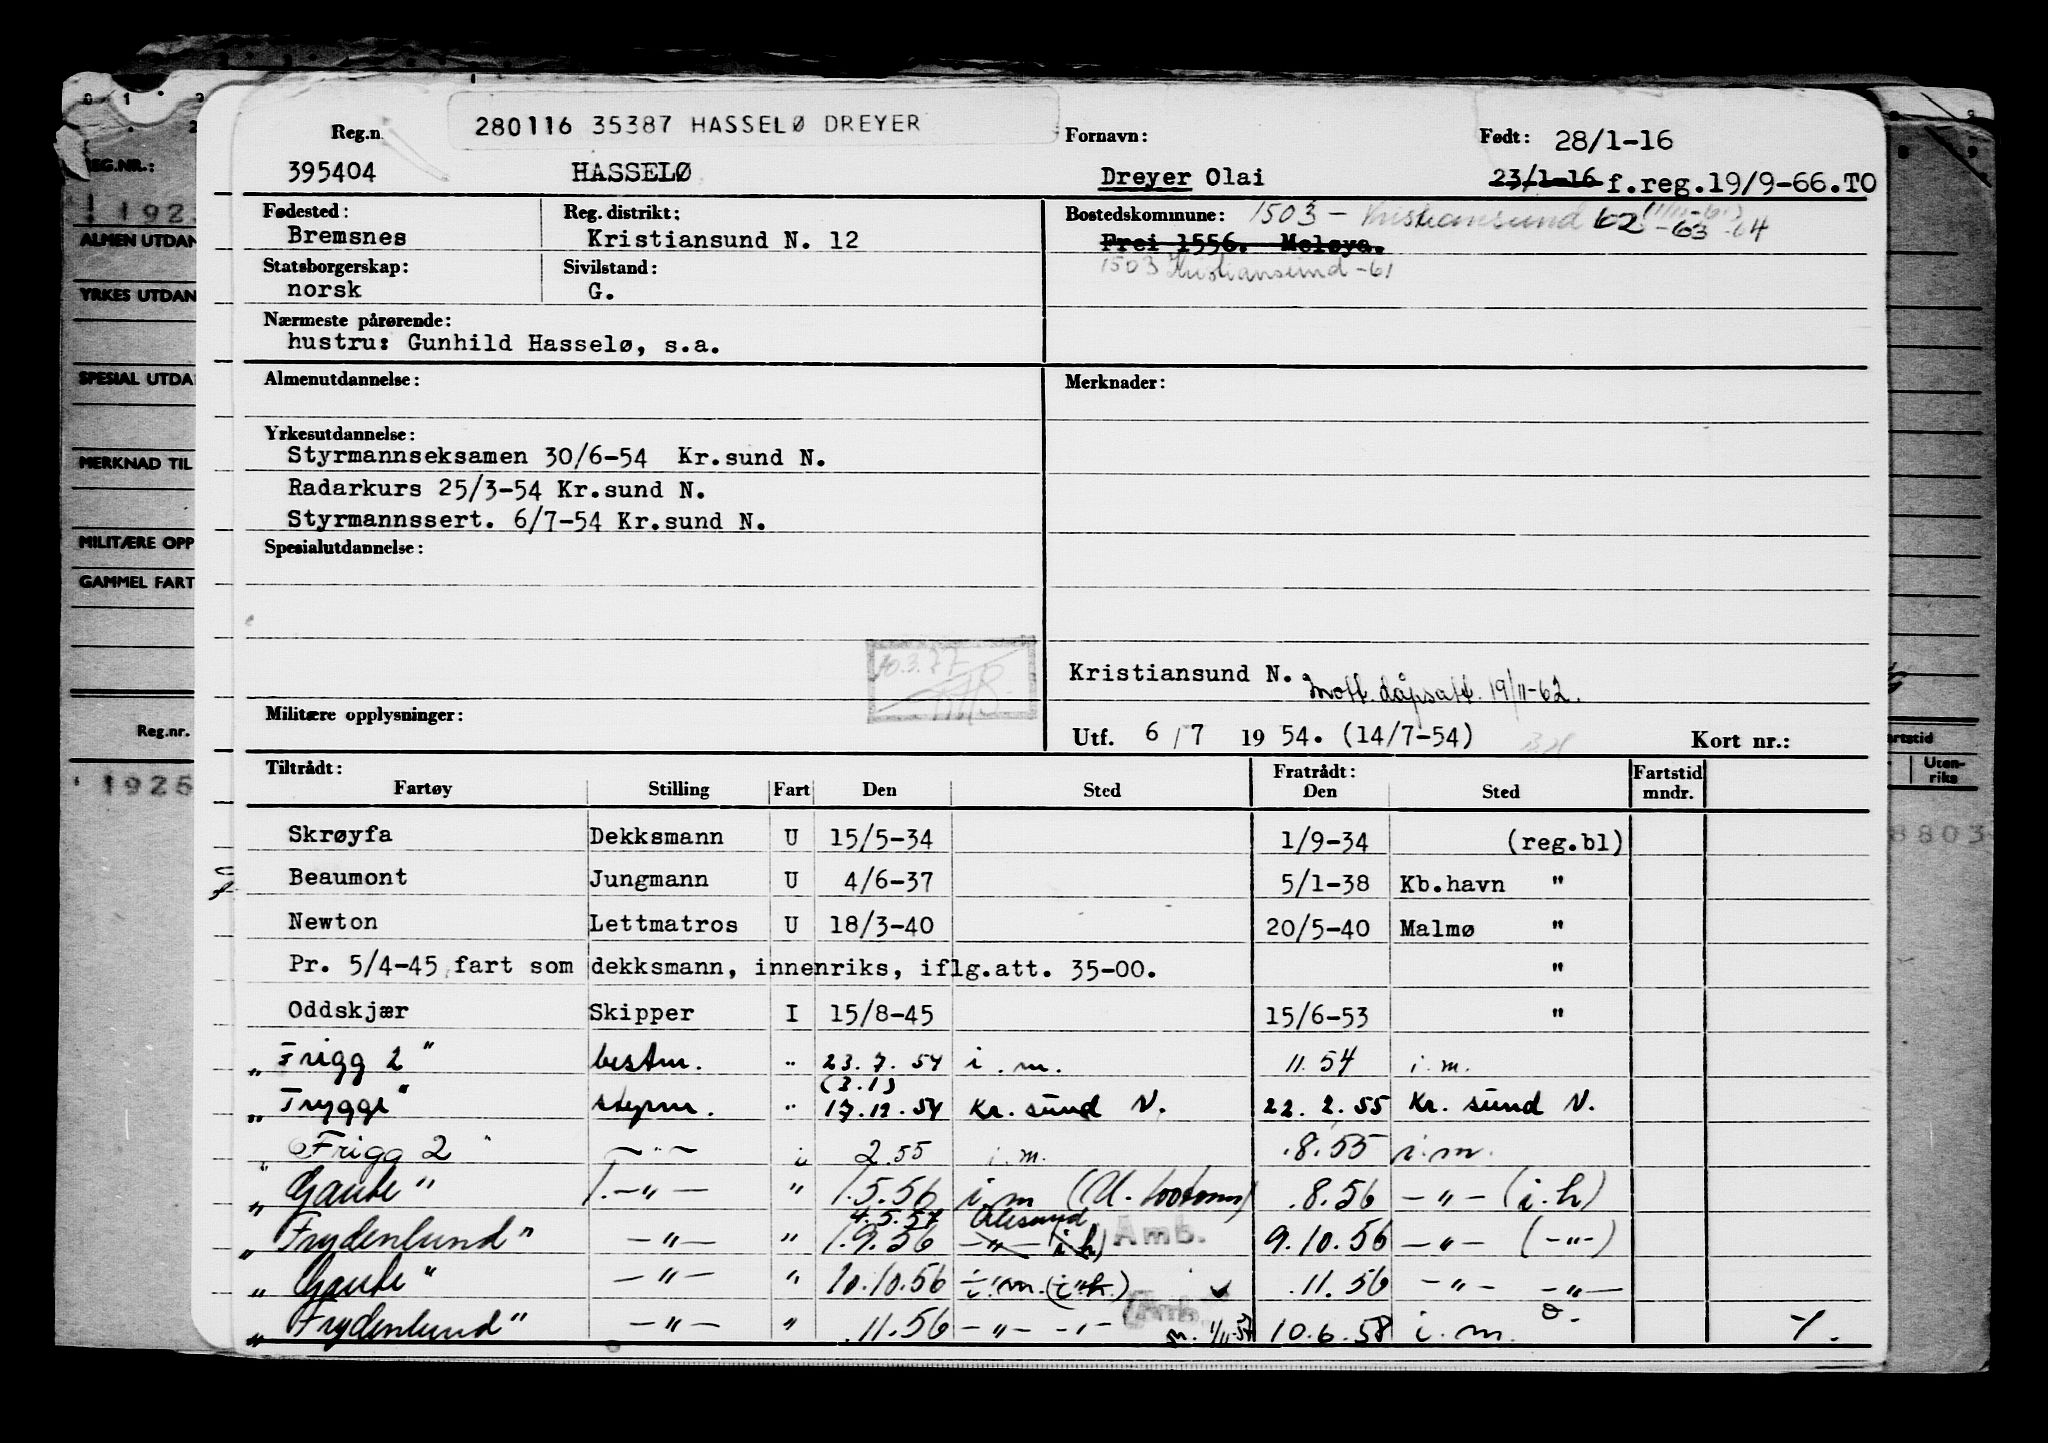 280116 35387 HASSELØ DREYER
Reg.n
395404 HASSELØ
Fornavn:
Dreyer Olai
Født: 28/1-16
23/1-16 f.reg.19/9-66.TO
Fødested:
Bremsnes
Reg. distrikt:
Kristiansund N. 12
Bostedskommune: 1503 - Kristiansund 62 (1/11-61) -63 -64
Frei 1556. Meløya.
1503 Kristiansund -61
Statsborgerskap:
norsk
Sivilstand:
G.
Nærmeste pårørende:
hustru: Gunhild Hasselø, s.a.
Almenutdannelse:
Merknader:
Yrkesutdannelse:
Styrmannseksamen 30/6-54 Kr.sund N.
Radarkurs 25/3-54 Kr.sund N.
Styrmannssert. 6/7-54 Kr.sund N.
Spesialutdannelse:
10.3.77
Kristiansund N. Mott. dåpsatt. 19/11-62.
Militære opplysninger:
Utf. 6/7 1954. (14/7-54) Kort nr.:
Tiltrådt: Fratrådt: Fartstid
Fartøy Stilling Fart Den Sted Den Sted mndr.
Skrøyfa Dekksmann U 15/5-34 1/9-34 (reg.bl)
Beaumont Jungmann U 4/6-37 5/1-38 Kb.havn "
Newton Lettmatros U 18/3-40 20/5-40 Malmø "
Pr. 5/4-45 fart som dekksmann, innenriks, iflg.att. 35-00. "
Oddskjær Skipper I 15/8-45 15/6-53 "
„Frigg 2" bestm. " 23.7.54 i.m. 11.54 i.m.
(3.1)
„Trygge" styrm. " 17.12.54 Kr. sund N. 22.2.55 Kr. sund N.
„Frigg 2" —"— i 2.55 i.m. .8.55 i.m.
„Gaute" 1.—"— " 1.5.56 i.m (U. .8.56 —"— (i.h)
4.5.57 Ålesund
„Frydenlund" —"— " 1.9.56 —"— (i h) Amb. 9.10.56 —"— (-"-)
„Gaute" —"— " 10.10.56 i.m. (i.h.) .11.56 —"— —"—
„Frydenlund" —"— " .11.56 —"— -"- Amb. m. 1/11-57 10.6.58 i.m.
REG.NR.:
1925
ALMEN UTDAN
YRKES UTDAN
SPESIAL UTDA
MERKNAD TIL
MILITÆRE OPP
GAMMEL FART
Reg.nr.
1925
artstid
Uten-
riks
8803